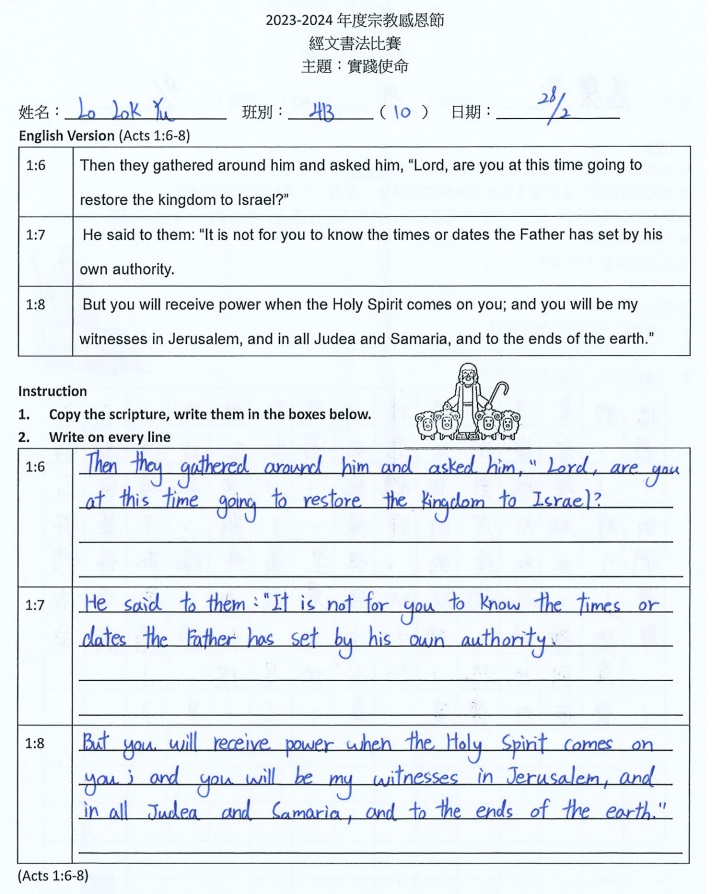 2023-2024 年度宗教感恩節
經文書法比賽
主題：實踐使命
姓名： Lo Lok Yu 班別： 4B ( 10 ) 日期： 28/2
English Version (Acts 1:6-8)
1:6 Then they gathered around him and asked him, “Lord, are you at this time going to
restore the kingdom to Israel?”
1:7 He said to them: “It is not for you to know the times or dates the Father has set by his
own authority.
1:8 But you will receive power when the Holy Spirit comes on you; and you will be my
witnesses in Jerusalem, and in all Judea and Samaria, and to the ends of the earth.”
Instruction
1. Copy the scripture, write them in the boxes below.
2. Write on every line
1:6 Then they gathered around him and asked him, " Lord, are you
at this time going to restore the kingdom to Israel?
1:7 He said to them : "It is not for you to know the times or
dates the Father has set by his own authority.
1:8 But you. will receive power when the Holy Spirit comes on
you ; and you will be my witnesses in Jerusalem, and
in all Judea and Samaria, and to the ends of the earth."
(Acts 1:6-8)